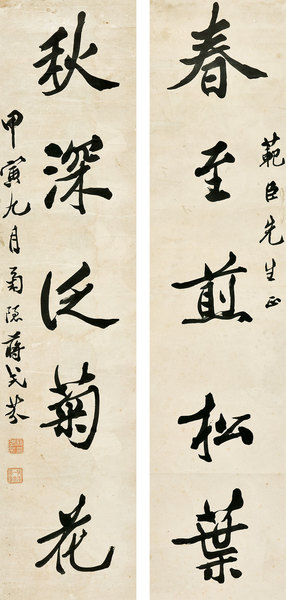 範臣先生正
春至煎松葉
秋深泛菊花
甲寅九月隱蔣式芬